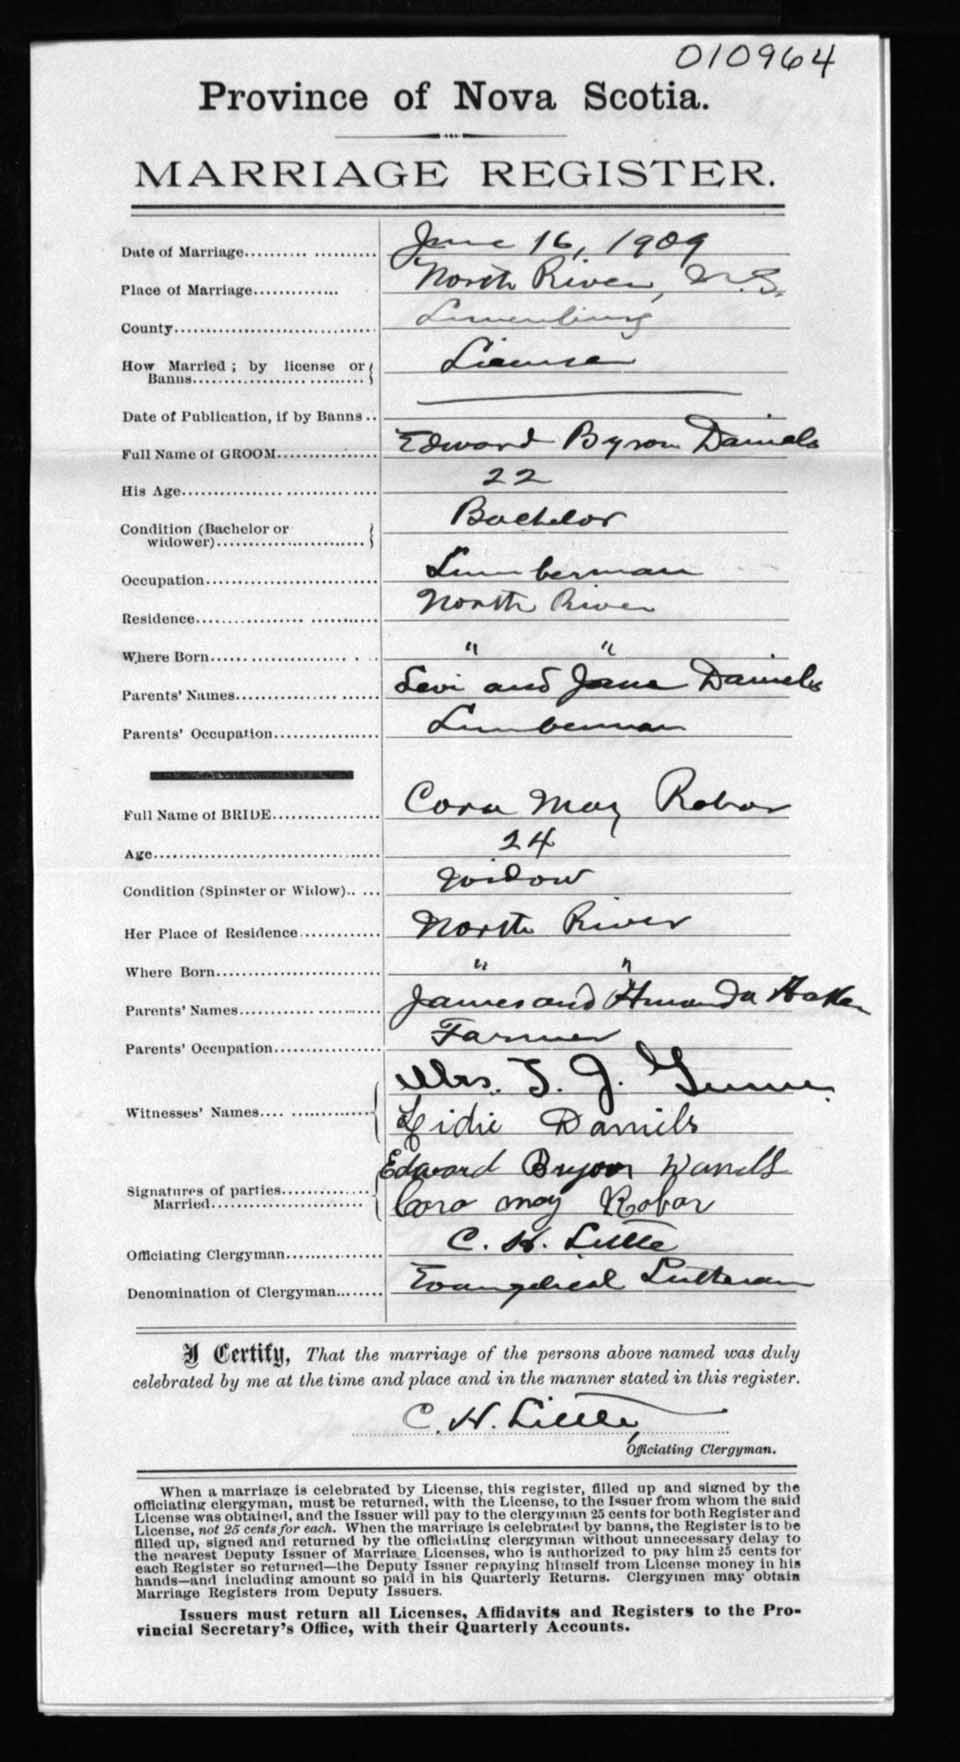 010964
Province of Nova Scotia.
MARRIAGE REGISTER.
Date of Marriage.......... .......... June 16, 1909
Place of Marriage............. North River, N.S.
County.............................. Lunenburg
How Married ; by license or
Banns.................... ......... License
Date of Publication, if by Banns ..
Full Name of GROOM................ Edward Byron Daniels
His Age................ .............. 22
Condition (Bachelor or
widower)........................... Bachelor
Occupation.......................... Lumberman
Residence................. .......... North River
Where Born....................... . . " "
Parents' Names................ ...... Levi and Jane Daniels
Parents' Occupation................. Lumberman
Full Name of BRIDE................. Cora May Robar
Age.................................... 24
Condition (Spinster or Widow).. ... Widow
Her Place of Residence............ North River
Where Born.......................... " "
Parents' Names.................. ..... James and
Parents' Occupation................. Farmer
Witnesses' Names.... .............. Mrs. T. J.
Lidie Daniels
Edward
Signatures of parties..............
Married......................... Cora May Robar
Officiating Clergyman............... C. H. Little
Denomination of Clergyman....... Evangelical Lutheran
I Certify, That the marriage of the persons above named was duly
celebrated by me at the time and place and in the manner stated in this register.
C. H. Little
Officiating Clergyman.
When a marriage is celebrated by License, this register, filled up and signed by the
officiating clergyman, must be returned, with the License, to the Issuer from whom the said
License was obtained, and the Issuer will pay to the clergyman 25 cents for both Register and
License, not 25 cents for each. When the marriage is celebrated by banns, the Register is to be
filled up, signed and returned by the officiating clergyman without unnecessary delay to
the nearest Deputy Issuer of Marriage Licenses, who is authorized to pay him 25 cents for
each Register so returned—the Deputy Issuer repaying himself from License money in his
hands—and including amount so paid in his Quarterly Returns. Clergymen may obtain
Marriage Registers from Deputy Issuers.
Issuers must return all Licenses, Affidavits and Registers to the Pro-
vincial Secretary's Office, with their Quarterly Accounts.